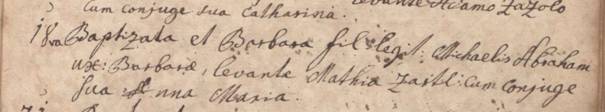 cum conjuge sua Catharina. levante Adamo Zazolo
18va Baptizata et Barbara fil: legit: Michaelis Abraham
ux: Barbaræ, levante Mathia Zaitl: cum conjuge
sua Anna Maria.